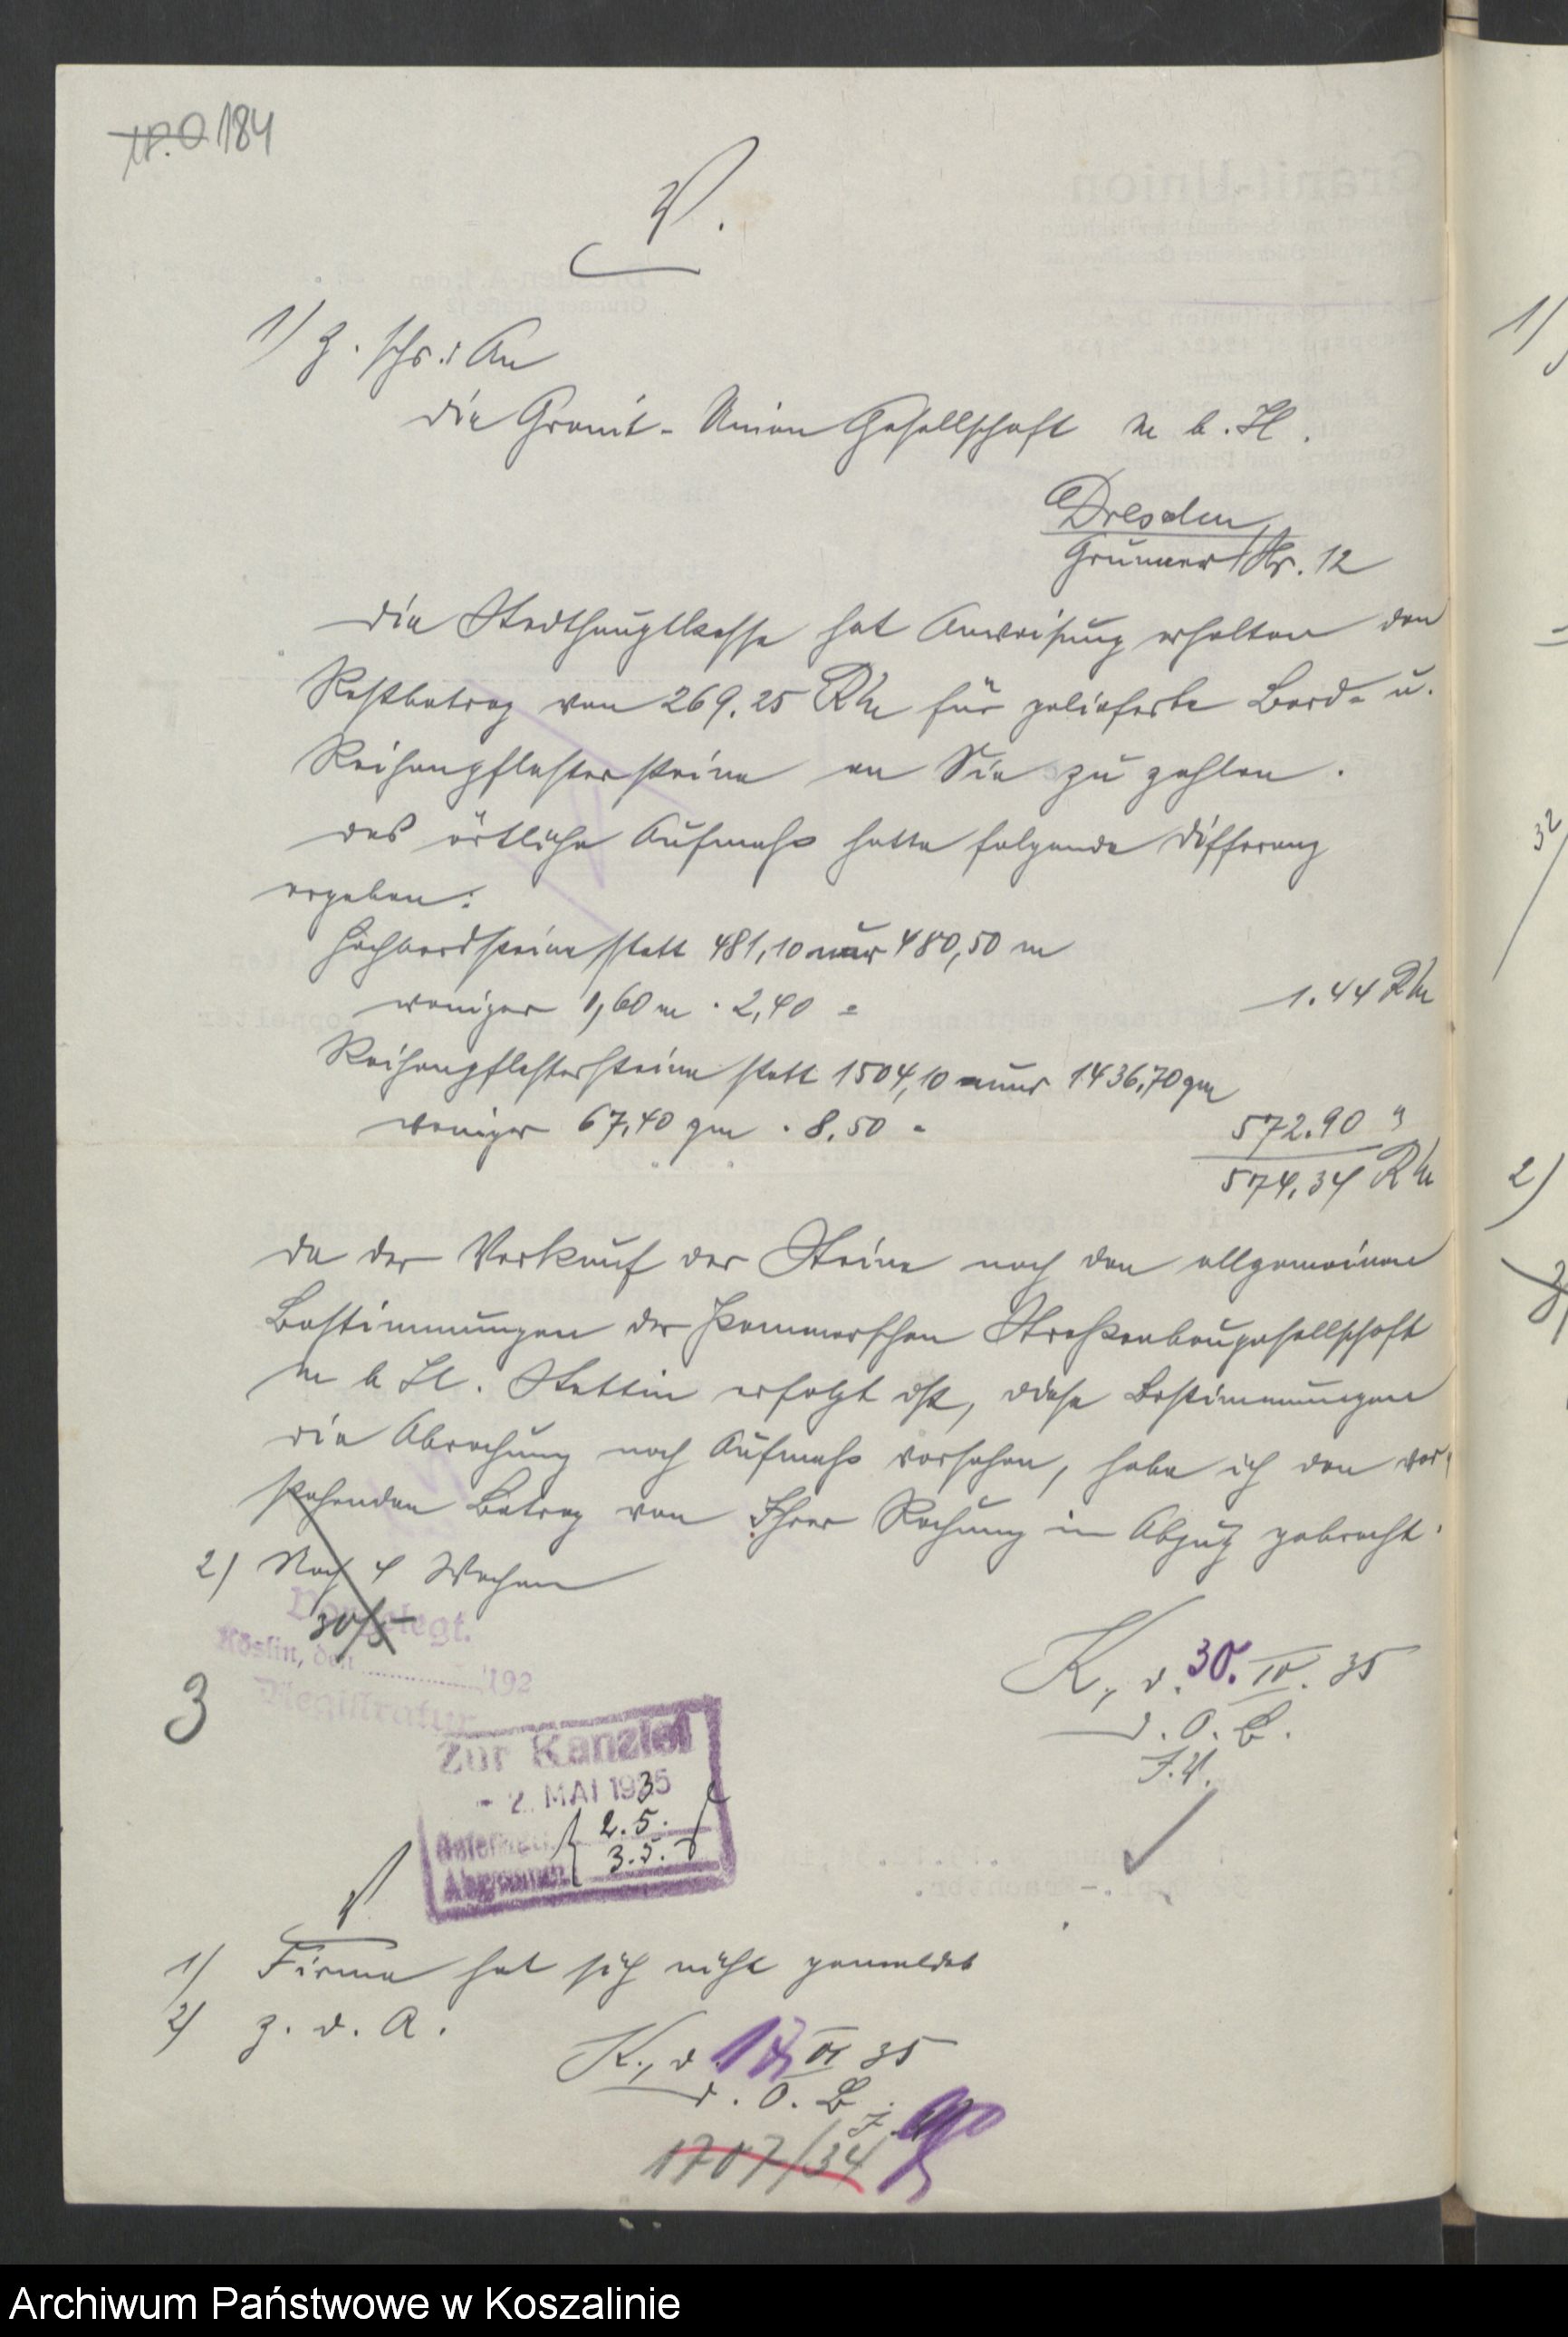 184
V.
1) z. Schr.: An
die Granit-Union Gesellschaft m b. H.
Dresden,
Grunaer Str. 12
Die Stadthauptkasse hat Anweisung erhalten den
Restbetrag von 269.25 RM für gelieferte Bord- u.
Reihenpflastersteine an Sie zu zahlen.
Das örtliche Aufmaß hatte folgende Differenz
ergeben:
Hochbordsteine statt 481,10 nur 480,50 m
weniger 0,60 m · 2,40 =
1.44 RM
Reihenpflastersteine statt 1504,10 nur 1436,70 qm
weniger 67,40 qm · 8.50 =
572.90 "
574,34 RM
Da der Verkauf der Steine nach den allgemeinen
Bestimmungen der Pommerschen Straßenbaugesellschaft
m b H. Stettin erfolgt ist, diese Bestimmungen
die Abrechnung nach Aufmaß vorsehen, habe ich den vor-
stehenden Betrag von Ihrer Rechnung in Abzug gebracht.
2) Nach 4 Wochen
30/5
Vorgelegt.
Köslin, den 192
Registratur
K., d. 30. IV. 35
D. O. B.
I. V.
3
Zur Kanzlei
- 2. MAI 1935
2.5.
3.5.
V
1) Firma hat sich nicht gemeldet
2) z. d. A.
K., d. VI 35
D. O. B.
1707/34
Archiwum Państwowe w Koszalinie